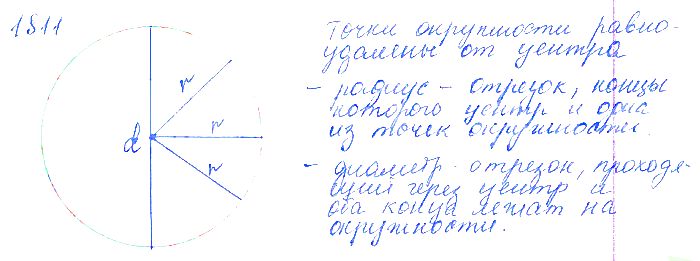 1511
r
r
d
r
точки окружности равно-
удалены от центра
- радиус - отрезок, концы
которого центр и одна
из точек окружности.
- диаметр - отрезок, проходя-
щий через центр и
оба конца лежат на
окружности.